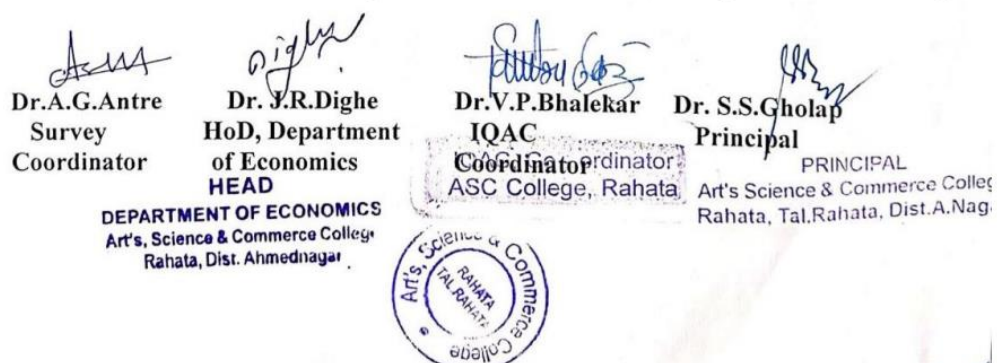 Dr.A.G.Antre
Survey
Coordinator
Dighe
Dr. J.R.Dighe
HoD, Department
of Economics
HEAD
DEPARTMENT OF ECONOMICS
Art's, Science & Commerce College
Rahata, Dist. Ahmednagar.
Dr.V.P.Bhalekar
IQAC
Coordinator
IQAC Co-ordinator
ASC College, Rahata
Dr. S.S.Gholap
Principal
PRINCIPAL
Art's Science & Commerce Colleg
Rahata, Tal.Rahata, Dist.A.Nag
Art's, Science & Commerce College
RAHATA
TAL.RAHATA